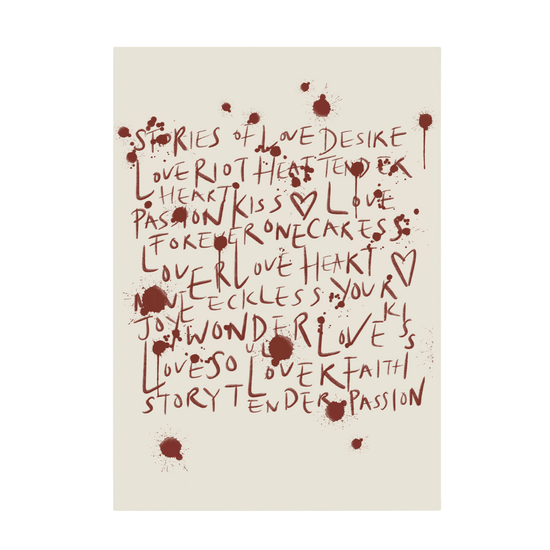 STORIES OF LOVE DESIRE
LOVE RIOT HEAT TENDER
HEART KISS ♡ LOVE
PASSION FOREVER ONE CARESS
LOVER LOVE HEART ♡
RECKLESS YOUR
JOY WONDER LOVE KISS
LOVE SO LOVER FAITH
STORY TENDER PASSION